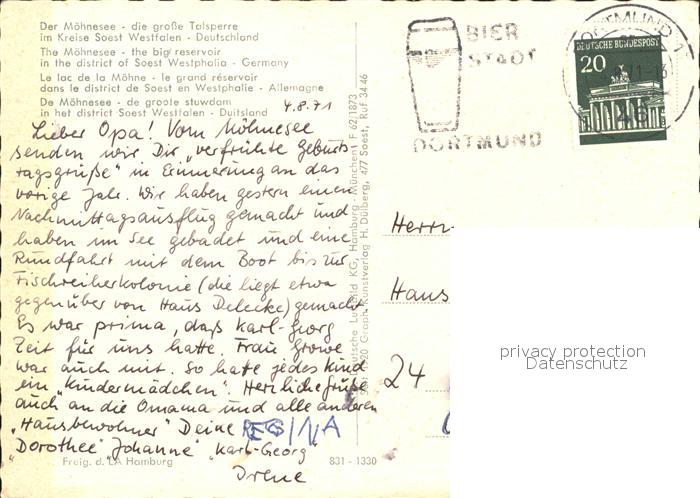 Der Möhnesee - die große Talsperre
im Kreise Soest Westfalen - Deutschland
The Möhnesee - the big reservoir
in the district of Soest Westphalia - Germany
Le lac de la Möhne - le grand réservoir
dans le district de Soest en Westphalie - Allemagne
De Möhnesee - de groote stuwdam
in het district Soest Westfalen - Duitsland
4.8.71
Lieber Opa! Vom Möhnesee
senden wir Dir „verfrühte Geburts
tagsgrüße" in Erinnerung an das
vorige Jahr. Wir haben gestern einen
Nachmittagsausflug gemacht und
haben im See gebadet und eine
Rundfahrt mit dem Boot bis zur
Fischreiherkolonie (die liegt etwa
gegenüber von Haus Delecke) gemacht.
Es war prima, daß Karl-Georg
Zeit für uns hatte. Frau Growe
war auch mit. So hatte jedes Kind
ein „Kindermädchen". Herzliche Grüße
auch an die Omama und alle anderen
„Hausbewohner" Deine REGINA
„Dorothee" „Johanne" „Karl-Georg"
Irene
Freig. d. LA Hamburg
831 - 1330
KG, Hamburg - München F 62/1873
Kunstverlag H. Dülberg, 477 Soest, Ruf 34 46
BIER
STADT
DORTMUND
DORTMUND 1
46
DEUTSCHE BUNDESPOST
20
Herrn
Haus
24
privacy protection
Datenschutz